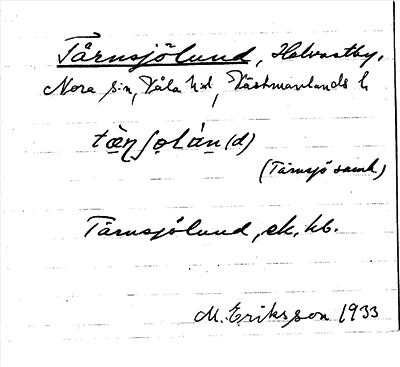 Tärnsjölund, Halvastby,
Nora sn, Våla hd, Västmanlands l.
tæ̀ṇʃo̩lán(d)
(Tärnsjö samh)
Tärnsjölund, ek. kb.
M. Eriksson 1933